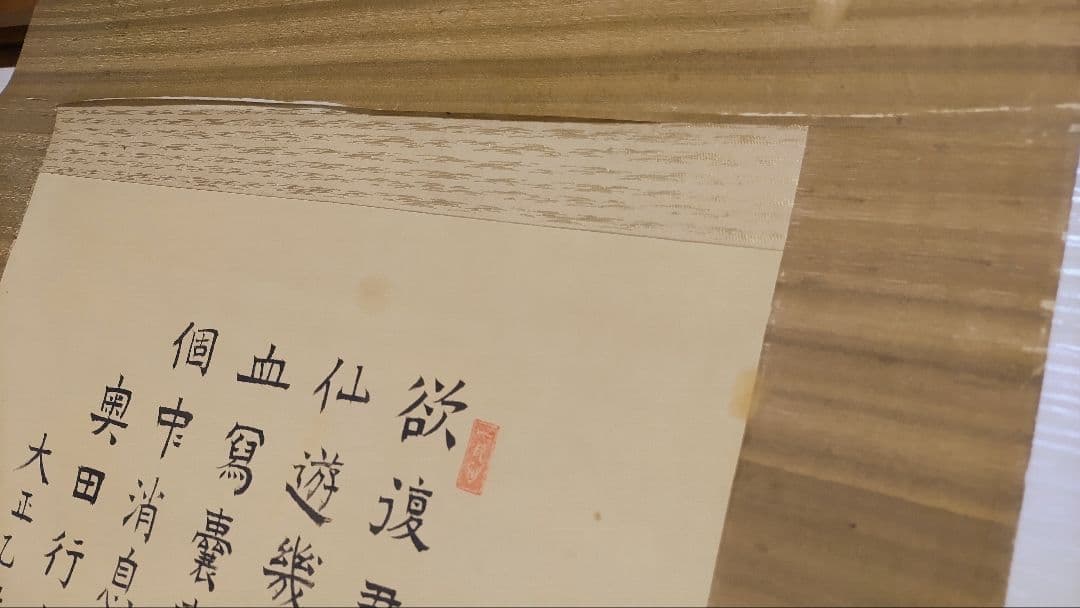 欲復君
仙遊幾
血寫囊
個中消息
奥田行
大正乙